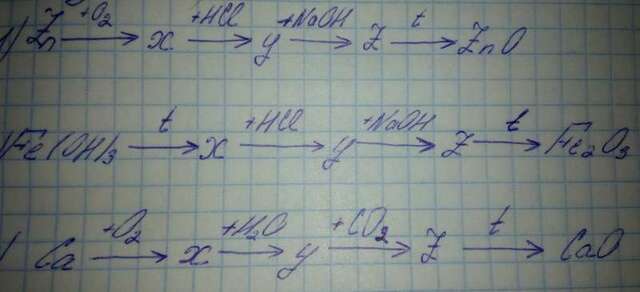 1) Zn +O2 → x +HCl → y +NaOH → Z t → ZnO
Fe(OH)3 t → x +HCl → y +NaOH → Z t → Fe2O3
Ca +O2 → x +H2O → y +CO2 → Z t → CaO